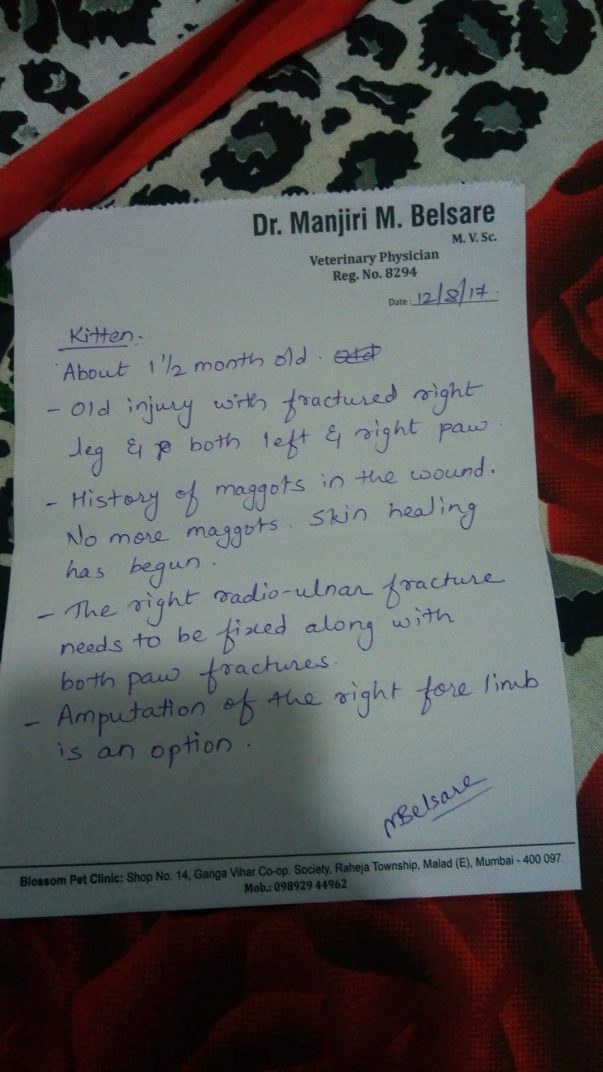 Dr. Manjiri M. Belsare
M. V. Sc.
Veterinary Physician
Reg. No. 8294
Date: 12/8/17.
Kitten.
About 1 1/2 month old.
- Old injury with fractured right
leg & both left & right paw.
- History of maggots in the wound.
No more maggots. Skin healing
has begun.
- The right radio-ulnar fracture
needs to be fixed along with
both paw fractures.
- Amputation of the right fore limb
is an option.
MBelsare
Blossom Pet Clinic: Shop No. 14, Ganga Vihar Co-op. Society, Raheja Township, Malad (E), Mumbai - 400 097.
Mob.: 098929 44962